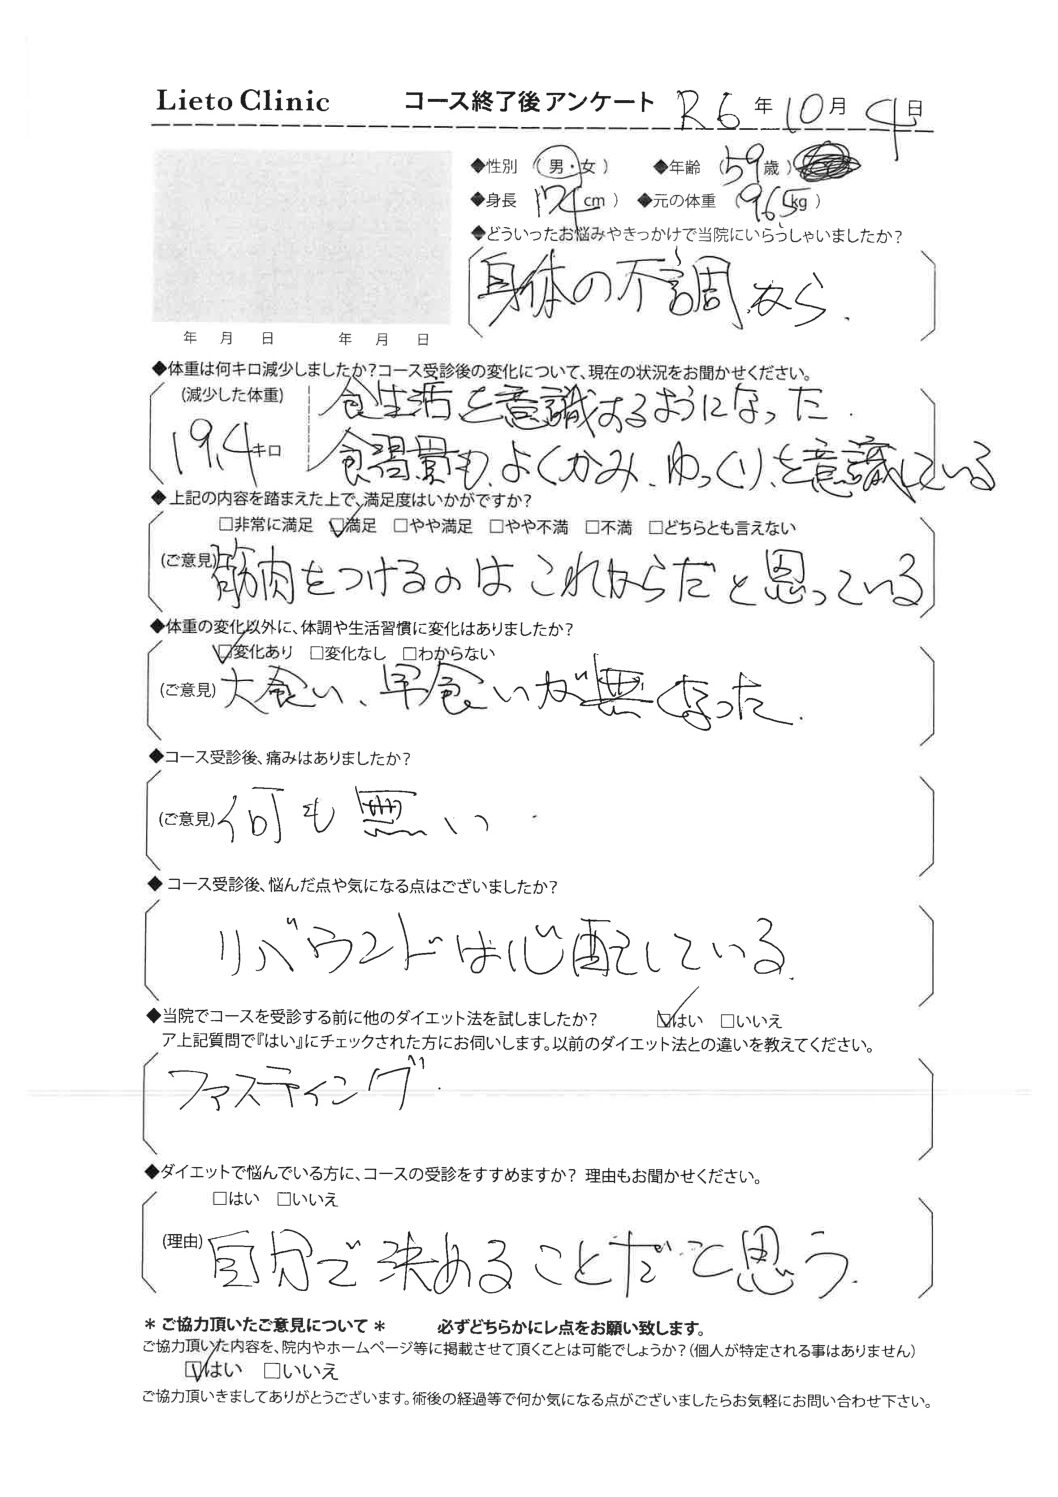 Lieto Clinic コース終了後アンケート R6年10月4日
◆性別 (男・女) ◆年齢 (59歳)
◆身長 174cm) ◆元の体重 (96.5kg)
◆どういったお悩みやきっかけで当院にいらっしゃいましたか?
身体の不調から.
年 月 日 年 月 日
◆体重は何キロ減少しましたか?コース受診後の変化について、現在の状況をお聞かせください。
(減少した体重) 食生活を意識するようになった.
19.4キロ 食習慣も、よくかみ、ゆっくり、を意識している
◆上記の内容を踏まえた上で、満足度はいかがですか?
□非常に満足 ☑満足 □やや満足 □やや不満 □不満 □どちらとも言えない
(ご意見) 筋肉をつけるのはこれからだと思っている
◆体重の変化以外に、体調や生活習慣に変化はありましたか?
☑変化あり □変化なし □わからない
(ご意見) 大食い、早食いが無くなった.
◆コース受診後、痛みはありましたか?
(ご意見) 何も無い.
◆コース受診後、悩んだ点や気になる点はございましたか?
リバウンドは心配している.
◆当院でコースを受診する前に他のダイエット法を試しましたか? ☑はい □いいえ
ア上記質問で『はい』にチェックされた方にお伺いします。以前のダイエット法との違いを教えてください。
ファスティング.
◆ダイエットで悩んでいる方に、コースの受診をすすめますか? 理由もお聞かせください。
□はい □いいえ
(理由) 自分で決めることだと思う.
＊ご協力頂いたご意見について＊ 必ずどちらかにレ点をお願い致します。
ご協力頂いた内容を、院内やホームページ等に掲載させて頂くことは可能でしょうか?(個人が特定される事はありません)
☑はい □いいえ
ご協力頂きましてありがとうございます。術後の経過等で何か気になる点がございましたらお気軽にお問い合わせ下さい。